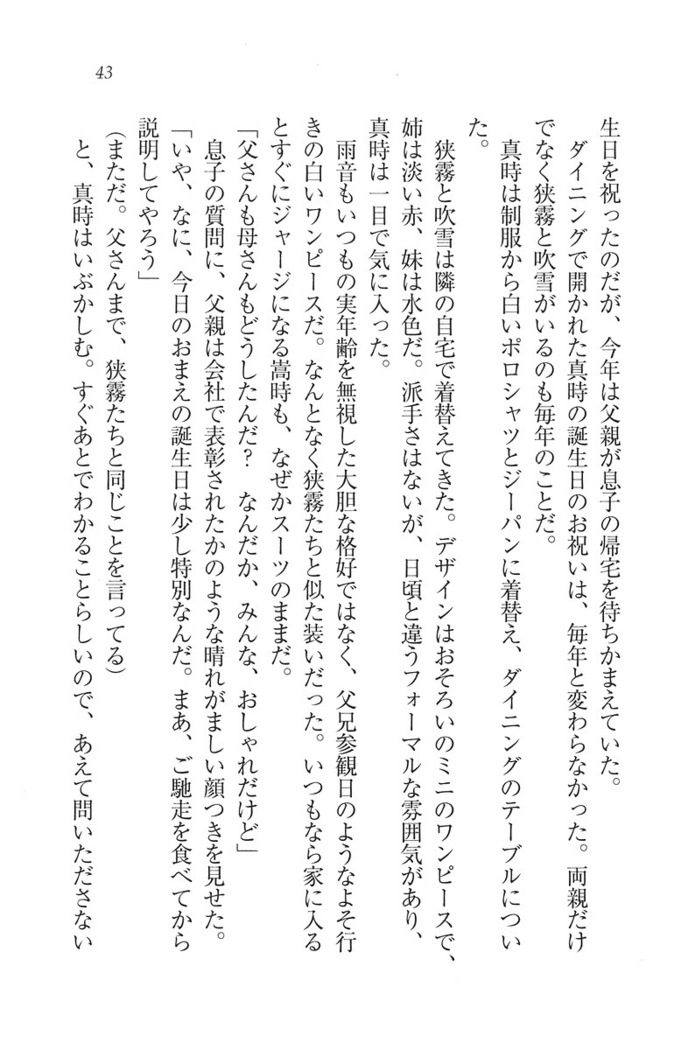 43
生日を祝ったのだが、今年は父親が息子の帰宅を待ちかまえていた。
ダイニングで開かれた真時の誕生日のお祝いは、毎年と変わらなかった。両親だけ
でなく狭霧と吹雪がいるのも毎年のことだ。
真時は制服から白いポロシャツとジーパンに着替え、ダイニングのテーブルについ
た。
狭霧と吹雪は隣の自宅で着替えてきた。デザインはおそろいのミニのワンピースで、
姉は淡い赤、妹は水色だ。派手さはないが、日頃と違うフォーマルな雰囲気があり、
真時は一目で気に入った。
雨音もいつもの実年齢を無視した大胆な格好ではなく、父兄参観日のようなよそ行
きの白いワンピースだ。なんとなく狭霧たちと似た装いだった。いつもなら家に入る
とすぐにジャージになる嵩時も、なぜかスーツのままだ。
「父さんも母さんもどうしたんだ？　なんだか、みんな、おしゃれだけど」
息子の質問に、父親は会社で表彰されたかのような晴れがましい顔つきを見せた。
「いや、なに、今日のおまえの誕生日は少し特別なんだ。まあ、ご馳走を食べてから
説明してやろう」
（まただ。父さんまで、狭霧たちと同じことを言ってる）
と、真時はいぶかしむ。すぐあとでわかることらしいので、あえて問いたださない